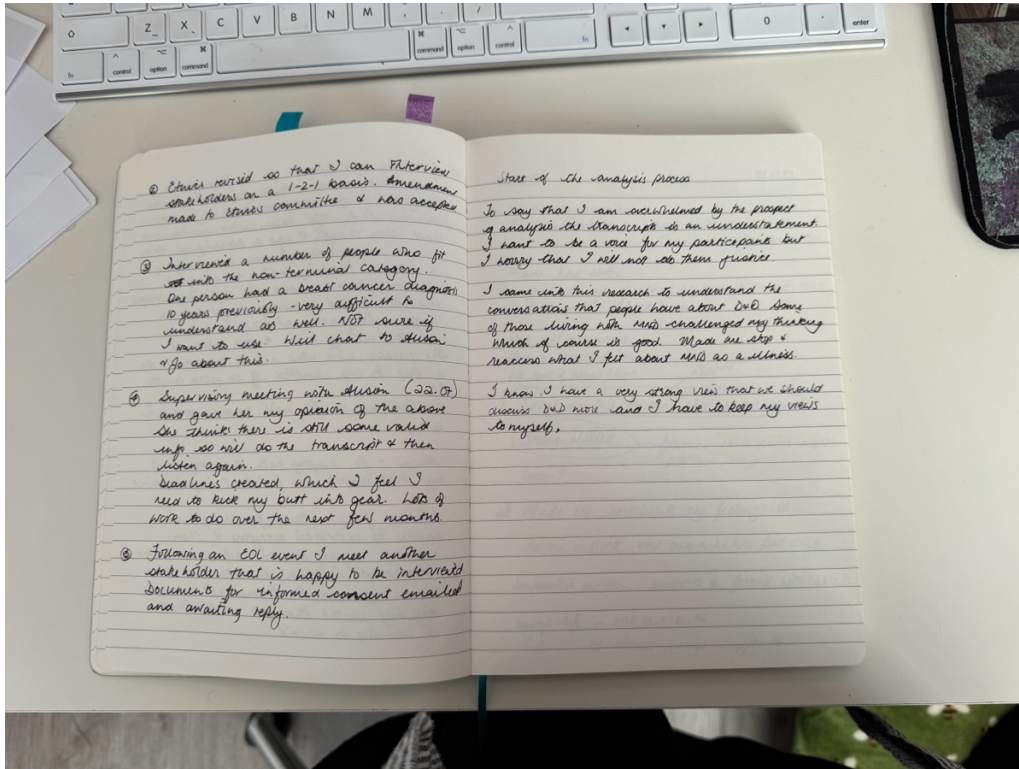 Z
X
C
V
B
N
M
0
enter
fn
control
option
command
⌘
command
option
control
fn
② Ethics revised so that I can interview
stakeholders on a 1-2-1 basis. Amendment
made to Ethics committee & was accepted
③ Interviewed a number of people who fit
into the non-terminal category.
One person had a breast cancer diagnosis
10 years previously - very difficult to
understand as well. Not sure if
I want to use. Will chat to Alison
& Jo about this.
④ Supervision meeting with Alison (22.07)
and gave her my opinion of the above
She thinks there is still some valid
info so will do the transcript & then
listen again.
Deadlines created, which I feel I
need to kick my butt into gear. Lots of
work to do over the next few months.
⑤ Following an EOL event I meet another
stakeholder that is happy to be interviewed
Documents for informed consent emailed
and awaiting reply.
Start of the analysis process
To say that I am overwhelmed by the prospect
of analysis the transcripts is an understatement.
I want to be a voice for my participants but
I worry that I will not do them justice.
I came into this research to understand the
conversations that people have about D&D. Some
of those living with MND challenged my thinking
which of course is good. Made me stop &
reassess what I felt about MND as a illness.
I know I have a very strong view that we should
discuss D&D more and I have to keep my views
to myself.